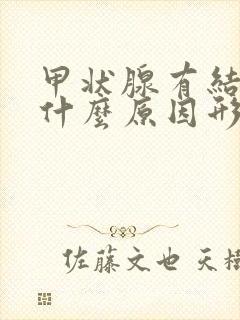 甲状腺有結
什麼原因形
佐藤文也 天樹